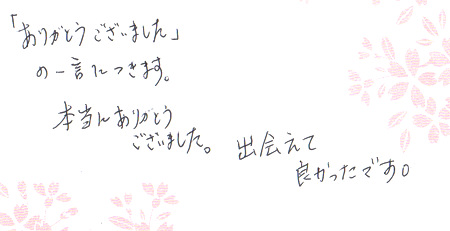 「ありがとうございました」
の一言につきます。
本当にありがとう
ございました。
出会えて
良かったです。